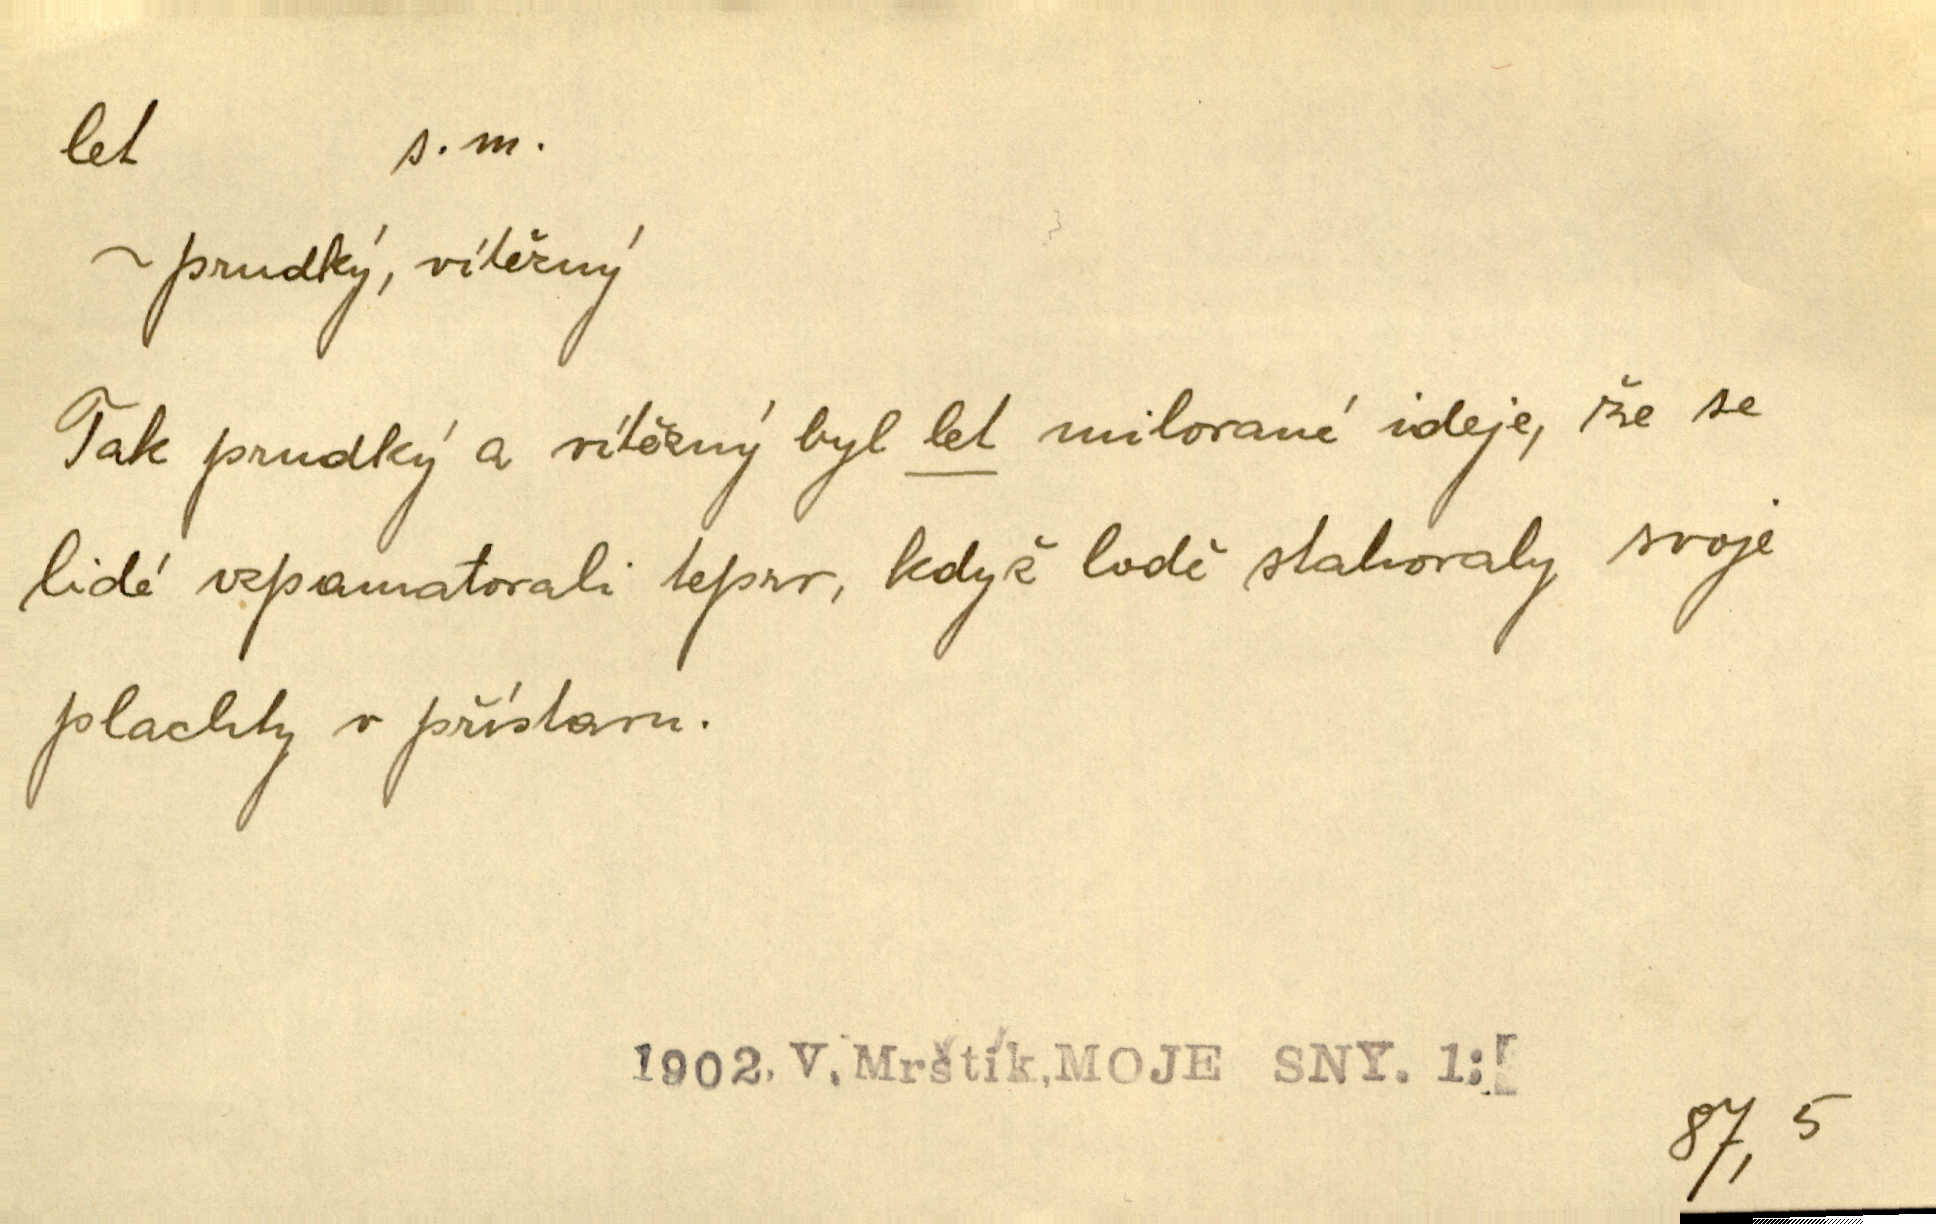 let s. m.
~ prudký, vítězný
Tak prudký a vítězný byl let milované ideje, že se
lidé vzpamatovali teprv, když lodě stahovaly svoje
plachty v přístavu.
1902. V. Mrštík, MOJE SNY. 1:
87, 5